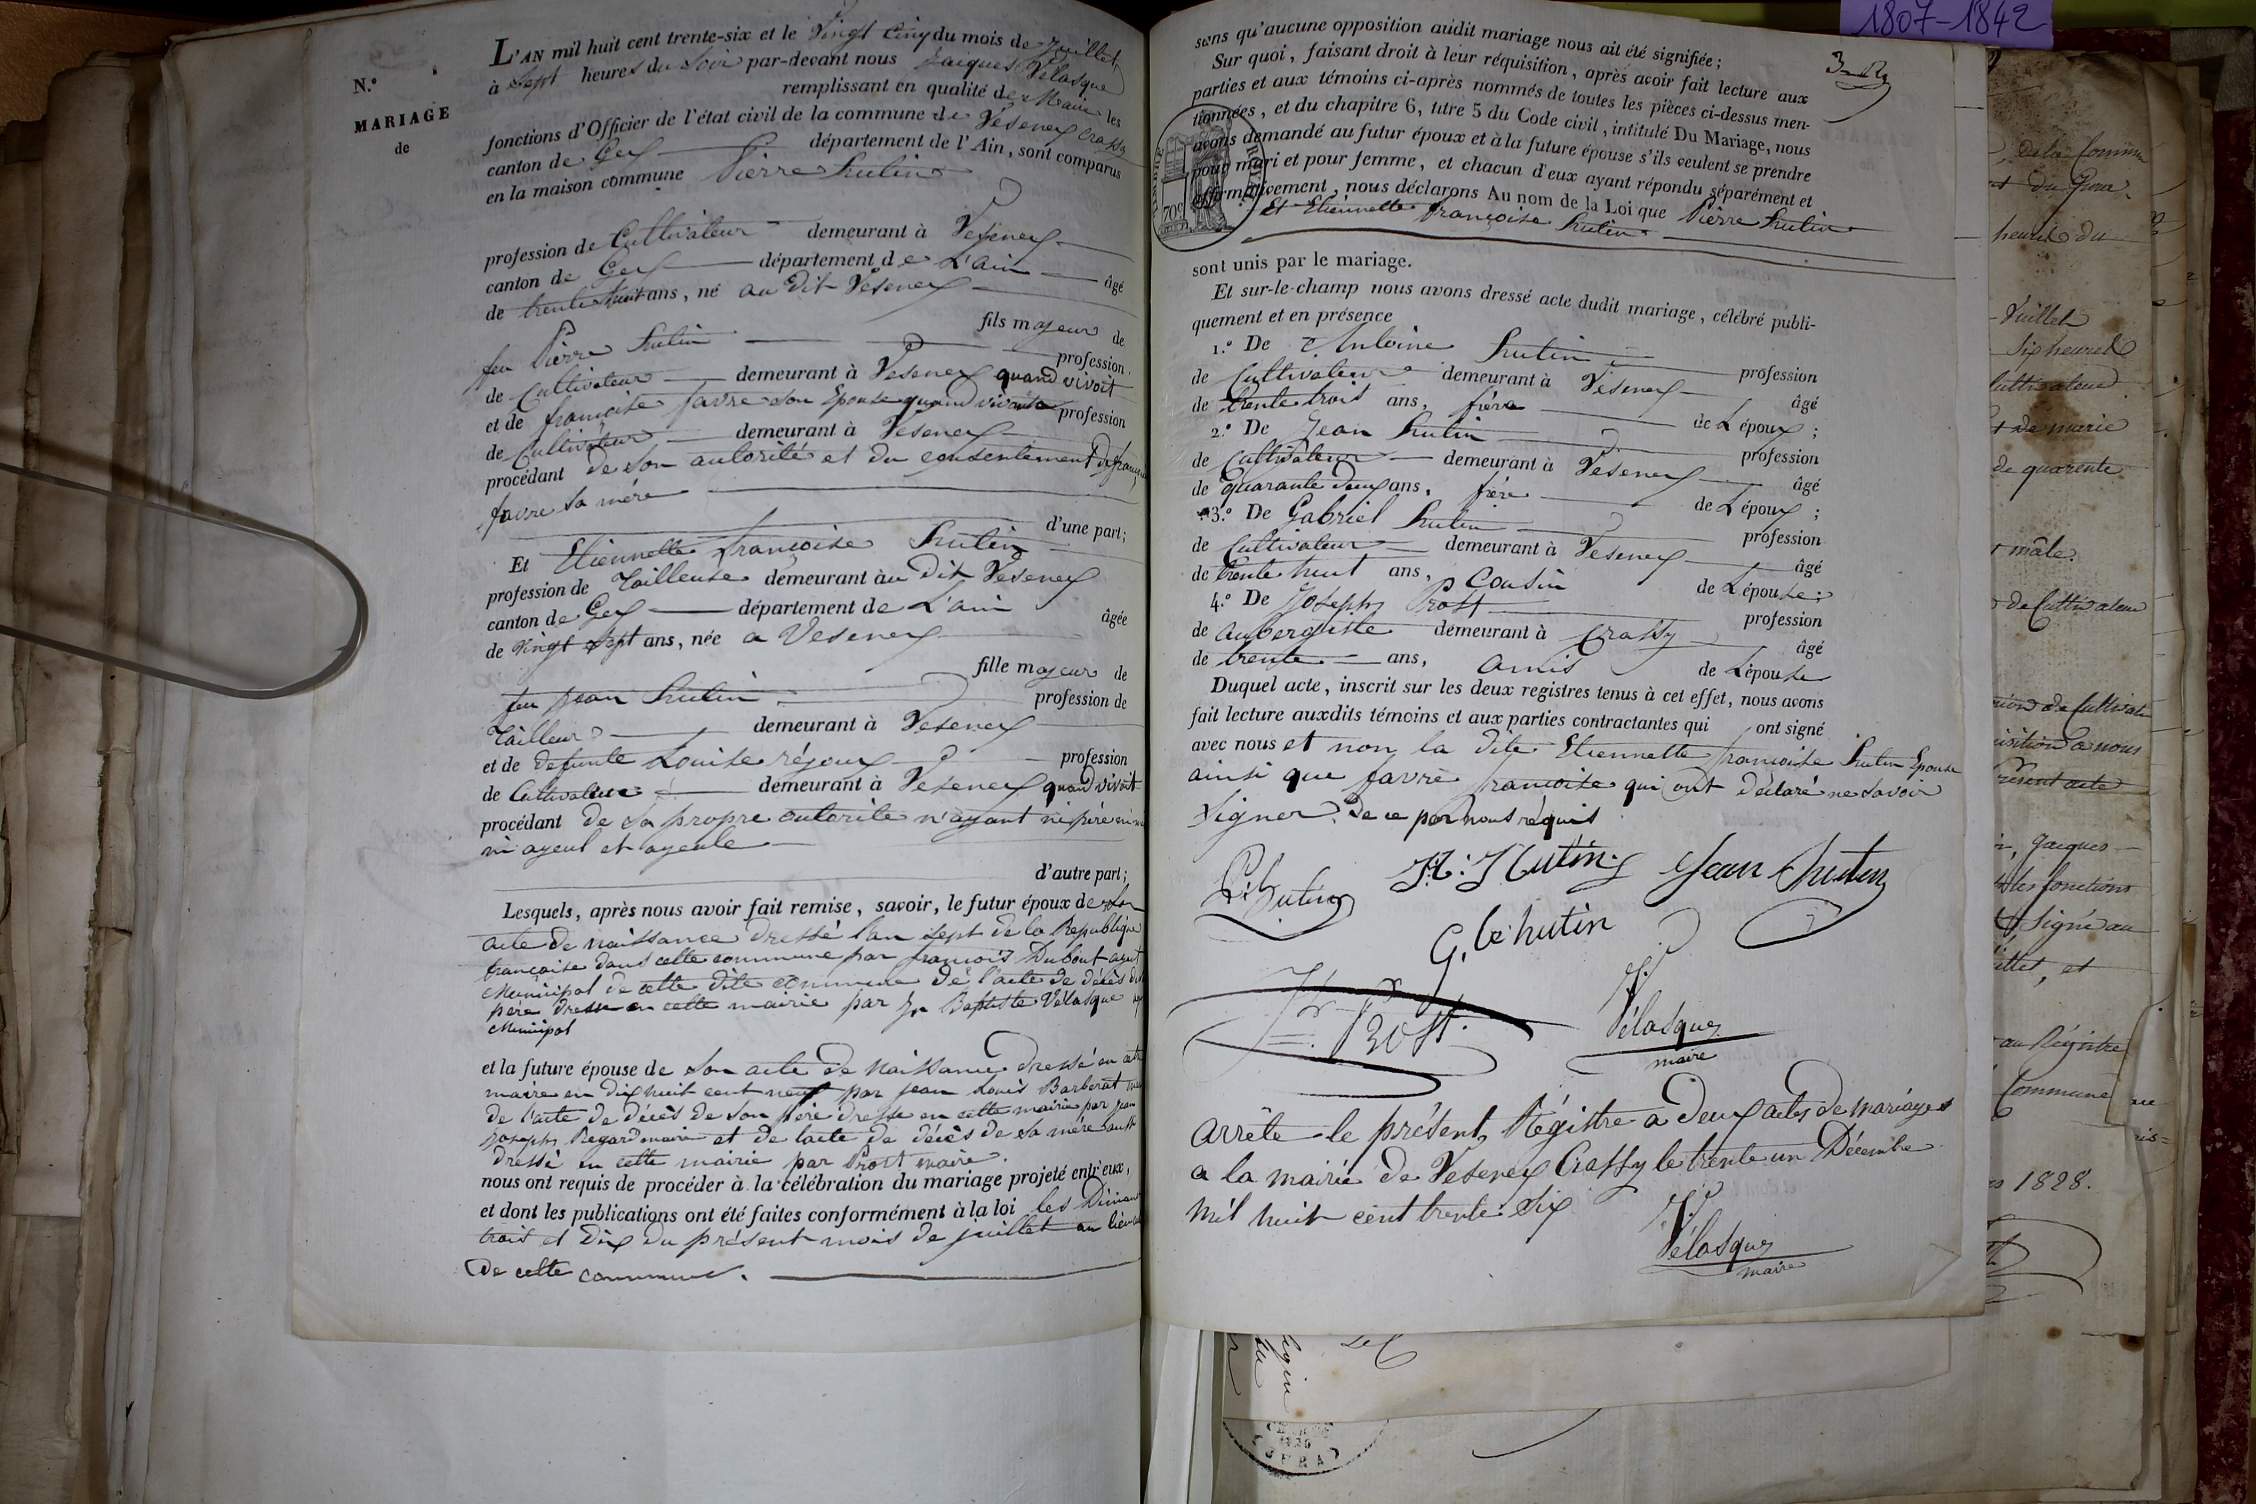 1807-1842
N.º
MARIAGE
de
L'AN mil huit cent trente-six et le Vingt Cinq du mois de Juillet
à Sept heures du Soir par-devant nous Jaiques Vélasque
remplissant en qualité de Maire les
fonctions d'Officier de l'état civil de la commune de Vesenex Crassy
canton de Gex département de l'Ain, sont comparus
en la maison commune Pierre Hutin
profession de Cultivateur demeurant à Vesenex
canton de Gex département de L'ain âgé
de trente huit ans, né au Dit Vesenex
fils majeur de
feu Pierre Hutin profession
de Cultivateur demeurant à Vesenex quand vivoit
et de françoise favre son Epouse quand vivoit profession
de Cultivateur demeurant à Vesenex
procédant de son autorité et du consentement De françoise
favre sa mére
d'une part;
Et Etiennette françoise Hutin
profession de Tailleuse demeurant àu Dit Vesenex
canton de Gex département de L'ain âgée
de Vingt Sept ans, née a Vesenex
fille majeur de
feu jean Hutin profession de
Tailleur demeurant à Vesenex
et de defunte Louise réjoux profession
de Cultivateur demeurant à Vesenex quand vivoit
procédant de sa propre autorité n'ayant ni péré ni
ni ayeul et ayeule
d'autre part;
Lesquels, après nous avoir fait remise, savoir, le futur époux de son
acte de naissance dressé l'an sept de la Republique
française dans cette commune par françois Dubout agent
Municipal de cette dite commune de l'acte de décès du
père dressé en cette mairie par Jn Baptiste Vélasque
Municipal
et la future épouse de son acte de Naissance dressé en cette
mairie en dix huit cent neuf par jean Louis Barberat
de l'acte de décès de son père dressé en cette mairie par jean
joseph Regard maire et de lacte de décès de sa mére aussi
dressé en cette mairie par Prost maire.
nous ont requis de procéder à la célébration du mariage projeté entr'eux,
et dont les publications ont été faites conformément à la loi les Diman
trois et dix du présent mois de juillet au lieu
De cette commune.
sans qu'aucune opposition audit mariage nous ait été signifiée;
Sur quoi, faisant droit à leur réquisition, après avoir fait lecture aux
parties et aux témoins ci-après nommés de toutes les pièces ci-dessus men-
tionnées, et du chapitre 6, titre 5 du Code civil, intitulé Du Mariage, nous
avons demandé au futur époux et à la future épouse s'ils veulent se prendre
pour mari et pour femme, et chacun d'eux ayant répondu séparément et
affirmativement, nous déclarons Au nom de la Loi que Pierre Hutin
Et Etiennette françoise Hutin
sont unis par le mariage.
Et sur-le-champ nous avons dressé acte dudit mariage, célébré publi-
quement et en présence
1.º De Antoine Hutin profession
de Cultivateur demeurant à Vesenex âgé
de trente trois ans, frére de L'époux;
2.º De Jean Hutin profession
de Cultivateur demeurant à Vesenex âgé
de quarante deux ans, frére de L'époux;
3.º De Gabriel Hutin profession
de Cultivateur demeurant à Vesenex âgé
de trente huit ans, Cousin de L'épouse;
4.º De Joseph Prost profession
de aubergiste demeurant à Crassy âgé
de trente ans, amis de L'épouse
Duquel acte, inscrit sur les deux registres tenus à cet effet, nous avons
fait lecture auxdits témoins et aux parties contractantes qui ont signé
avec nous et non la dite Etiennette françoise Hutin Epouse
ainsi que favre françoise qui ont Déclaré ne savoir
signer. De ce par nous réquis
P. hutin A: Hutin Jean hutin
G. hutin
Prost
Vélasque
maire
arrête le présent Régistre a Deux actes de mariages
a la mairie de Vesenex Crassy le trente un Décembre
mil huit cent trente six
Vélasque
maire
de la Commune
heures du
Juillet
Six heures
Cultivateur
de marie
de quarente
mâle.
de Cultivateur
de Cultivat
a nous
présent acte
Jaques
les fonctions
Signé au
et
au Régistre
Commune
1828.